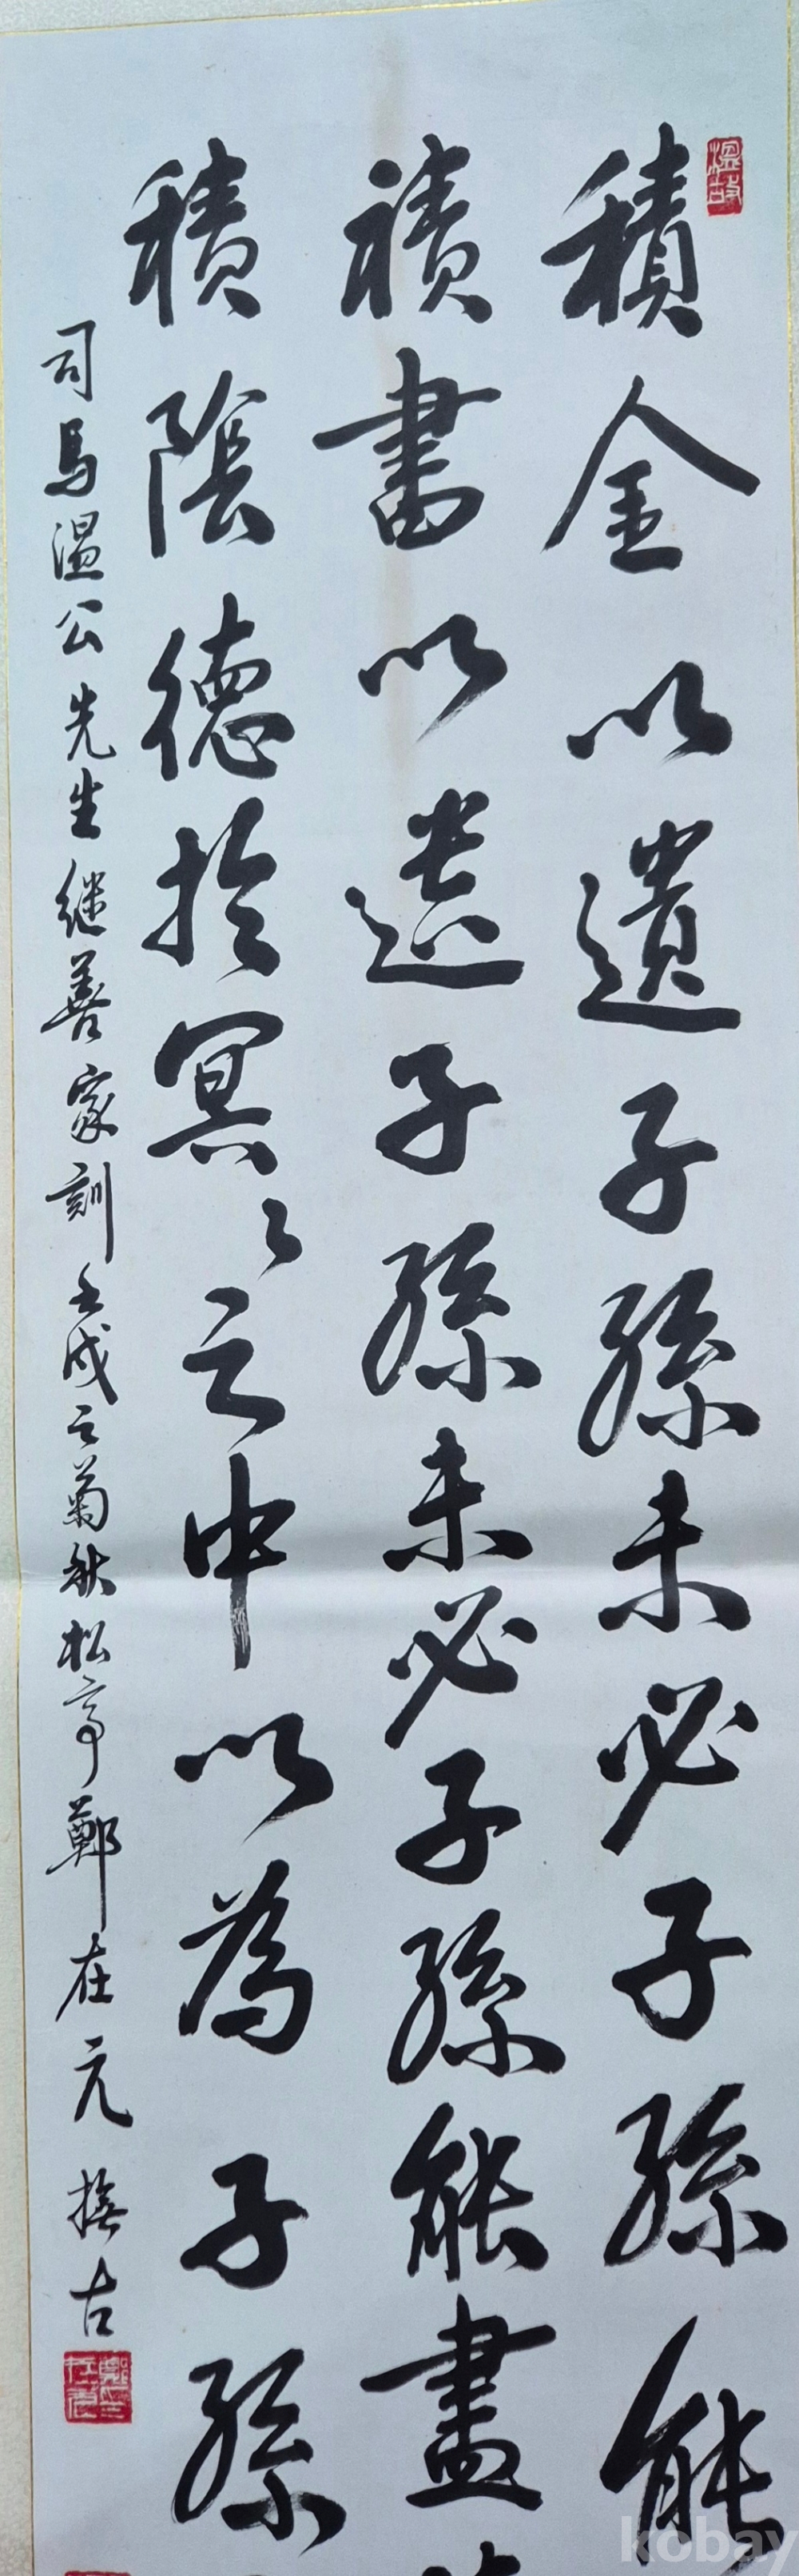 溫故
積金以遺子孫未必子孫能
積書以遺子孫未必子孫能盡
積陰德於冥〻之中以為子孫
司馬溫公先生继善家訓 壬戌之菊秋 松亭 鄭在元 撫古
kobay